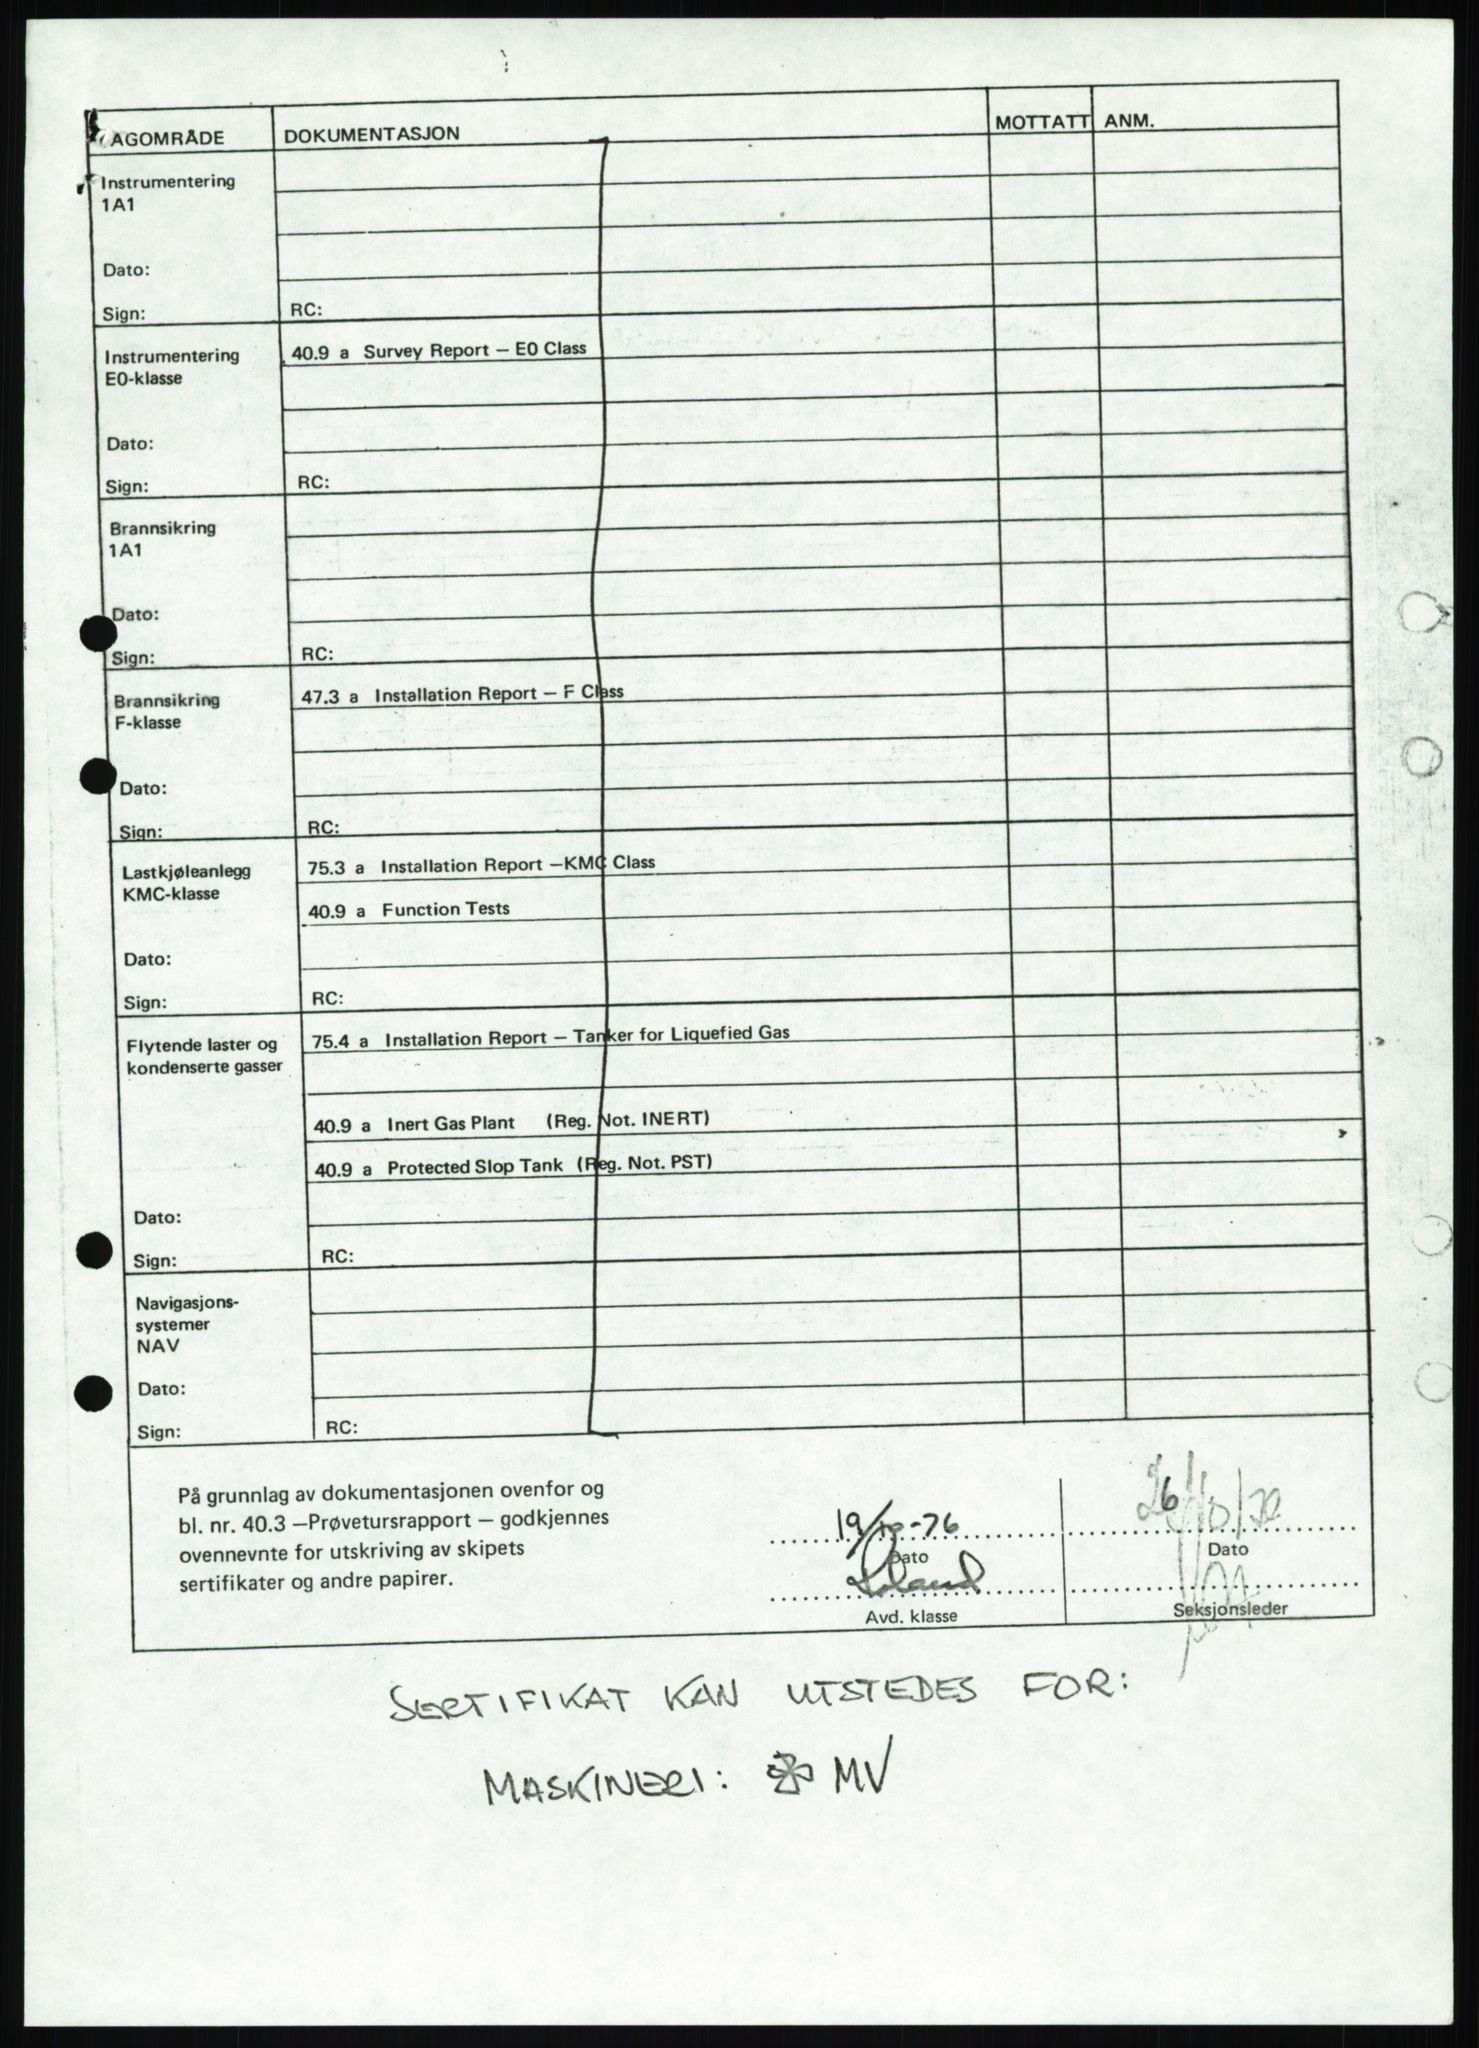 AGOMRÅDE DOKUMENTASJON MOTTATT ANM.
Instrumentering
1A1
Dato:
Sign: RC:
Instrumentering 40.9 a Survey Report – E0 Class
E0-klasse
Dato:
Sign: RC:
Brannsikring
1A1
Dato:
Sign: RC:
Brannsikring 47.3 a Installation Report – F Class
F-klasse
Dato:
Sign: RC:
Lastkjøleanlegg 75.3 a Installation Report –KMC Class
KMC-klasse 40.9 a Function Tests
Dato:
Sign: RC:
Flytende laster og 75.4 a Installation Report – Tanker for Liquefied Gas
kondenserte gasser
40.9 a Inert Gas Plant (Reg. Not. INERT)
40.9 a Protected Slop Tank (Reg. Not. PST)
Dato:
Sign: RC:
Navigasjons-
systemer
NAV
Dato:
Sign: RC:
På grunnlag av dokumentasjonen ovenfor og
bl. nr. 40.3 –Prøvetursrapport – godkjennes
ovennevnte for utskriving av skipets
sertifikater og andre papirer.
19/10-76
Dato Dato
Avd. klasse Seksjonsleder
SERTIFIKAT KAN UTSTEDES FOR:
MASKINERI: MV